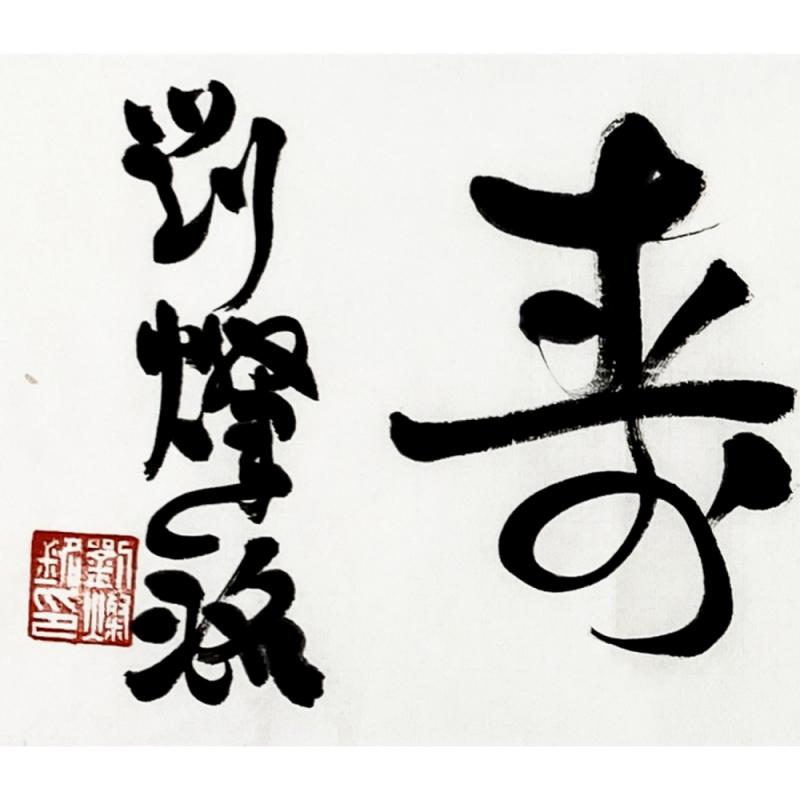 寿
劉燦銘
劉燦
銘印